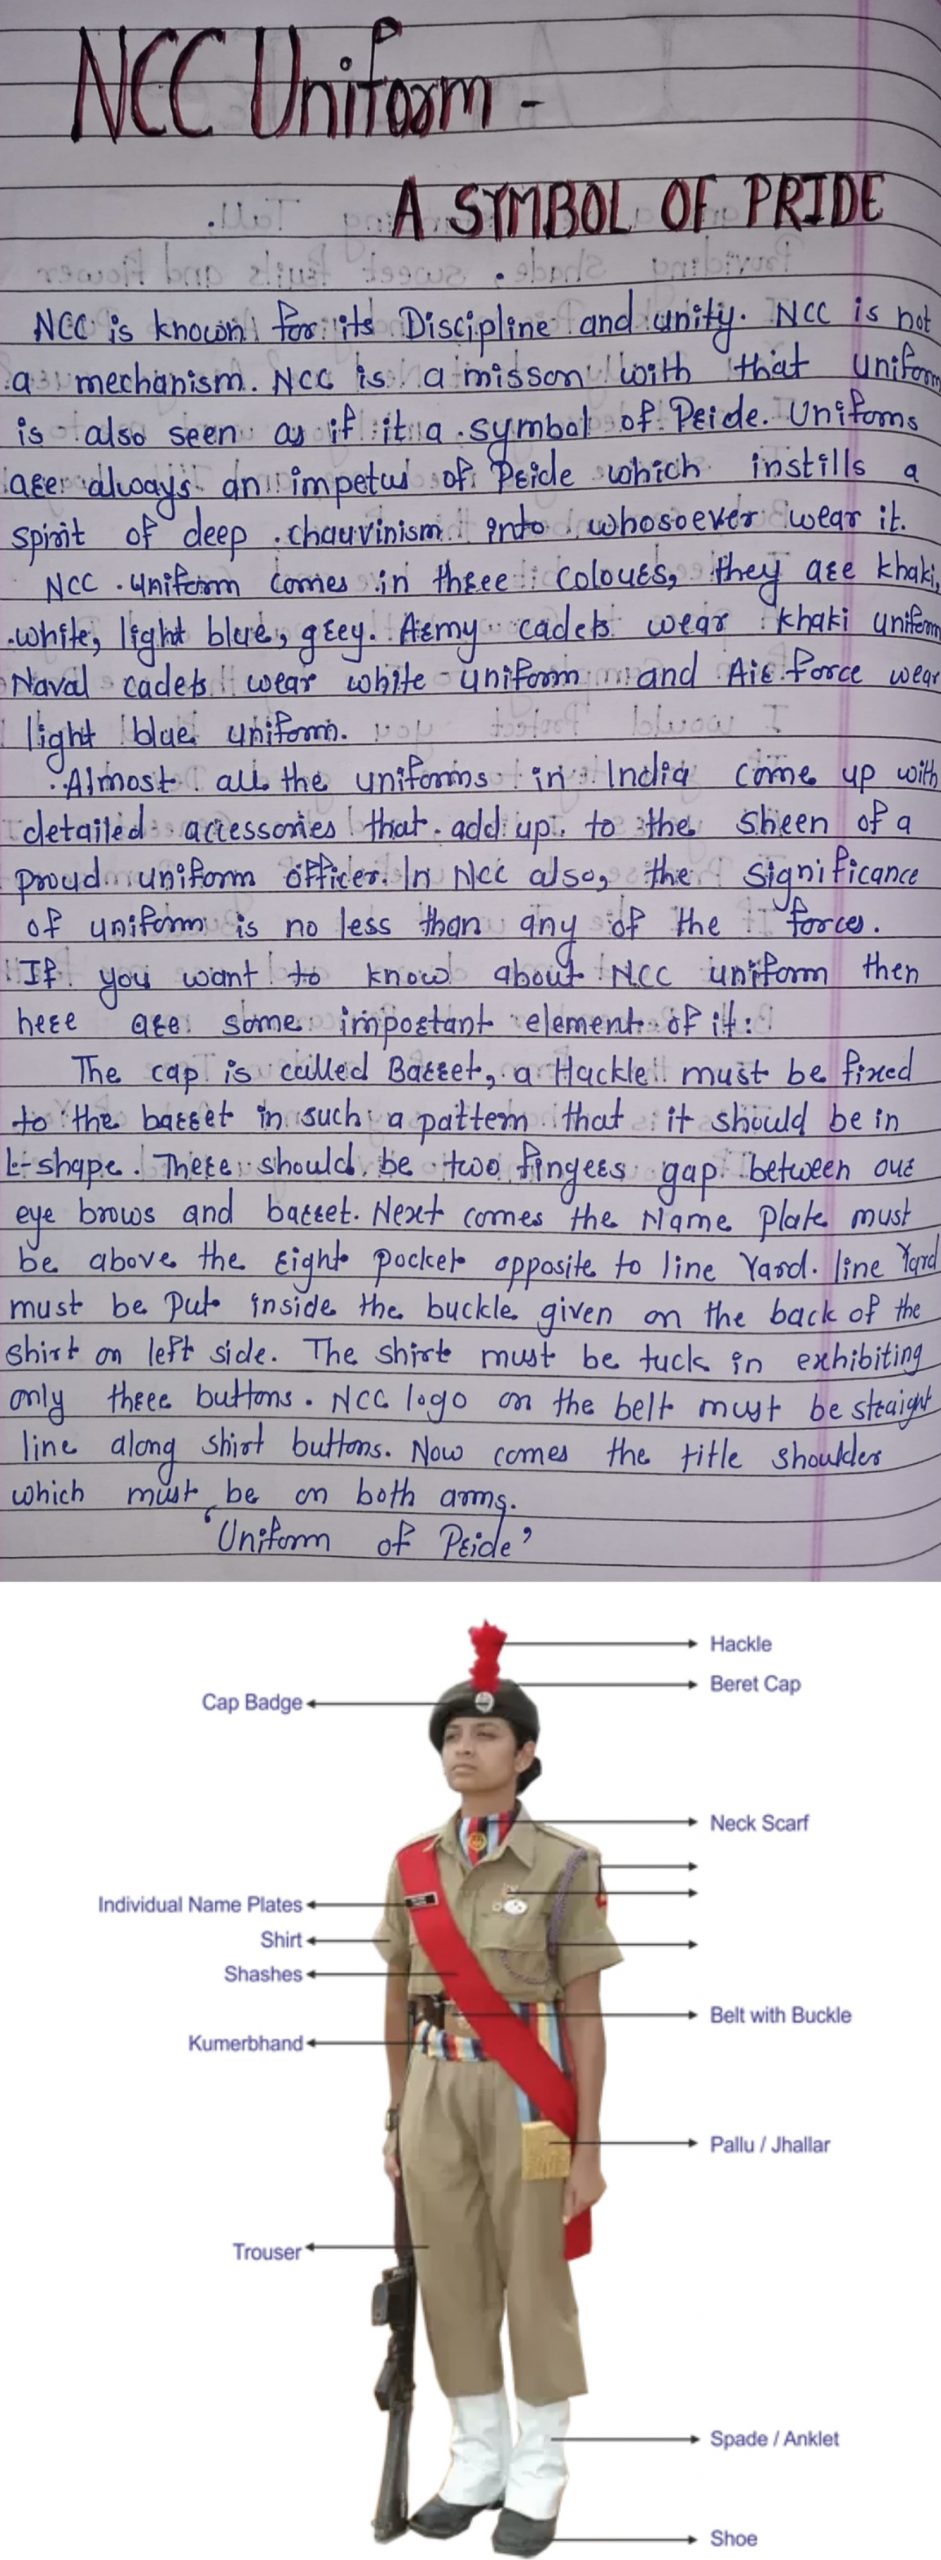 NCC Uniform -
A SYMBOL OF PRIDE
NCC is known for its Discipline and unity. NCC is not
a mechanism. NCC is a misson with that uniform
is also seen as if it a symbol of Pride. Unifoms
are always an impetus of Pride which instills a
spirit of deep chauvinism into whosoever wear it.
NCC uniform comes in three colours, they are khaki,
white, light blue, grey. Army cadets wear khaki uniform
Naval cadets wear white uniform and Air force wear
light blue uniform.
Almost all the uniforms in India come up with
detailed accessories that add up to the sheen of a
proud uniform officer. In Ncc also, the significance
of uniform is no less than any of the forces.
If you want to know about NCC uniform then
here are some important element of it:
The cap is called Barret, a Hackle must be fixed
to the barret in such a pattern that it should be in
L-shape. There should be two fingers gap between our
eye brows and barret. Next comes the Name plate must
be above the right pocket opposite to line Yard. line Yard
must be put inside the buckle given on the back of the
shirt on left side. The shirt must be tuck in exhibiting
only three buttons. NCC logo on the belt must be straight
line along shirt buttons. Now comes the title shoulder
which must be on both arms.
'Uniform of Pride'
Hackle
Beret Cap
Cap Badge
Neck Scarf
Individual Name Plates
Shirt
Shashes
Belt with Buckle
Kumerbhand
Pallu / Jhallar
Trouser
Spade / Anklet
Shoe